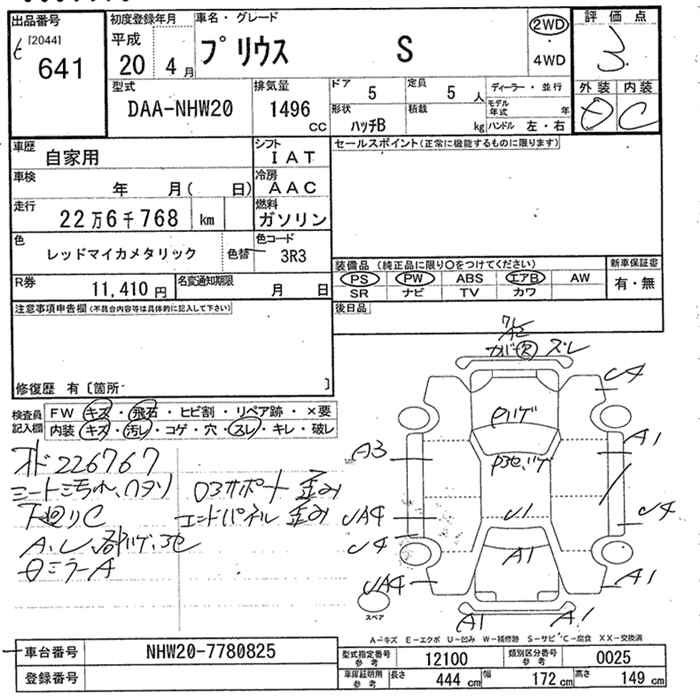 出品番号 初度登録年月 車名・グレード 評価点
[2044] 平成 プリウス S 2WD 3
641 20 4月 4WD
型式 排気量 ドア 5 定員 5人 ディーラー・並行 外装 内装
DAA-NHW20 1496 CC 形状 ハッチB 積載 kg モデル年式 年 D C
ハンドル 左・右
車歴 自家用 シフト IAT セールスポイント(正常に機能するものに限ります)
車検 年 月( 日) 冷房 AAC
走行 22万6千768 km 燃料 ガソリン
色 レッドマイカメタリック 色替 色コード 3R3
装備品 (純正品に限り○をつけてください) 新車保証書
R券 11,410円 名変通知期限 月 日 PS PW ABS エアB AW 有・無
SR ナビ TV カワ
注意事項申告欄(不具合内容等は具体的に記入して下さい) 後日品
修復歴 有〔箇所 〕
検査員記入欄 FW キズ・飛石・ヒビ割・リペア跡・×要
内装 キズ・汚レ・コゲ・穴・スレ・キレ・破レ
ズレ
U4
A3
A1
オド226767
シート汚れ、
下廻りC エンドパネル 歪み
ミラーA
UA4
U4
U1
U4
A1
UA4
A1
A1
A1
スペア
A-キズ E-エクボ U-凹み W-補修跡 S-サビ C-腐食 XX-交換済
車台番号 NHW20-7780825
登録番号
型式指定番号 参考 12100 類別区分番号 参考 0025
車庫証明用 参考 長さ 444 cm 幅 172 cm 高さ 149 cm